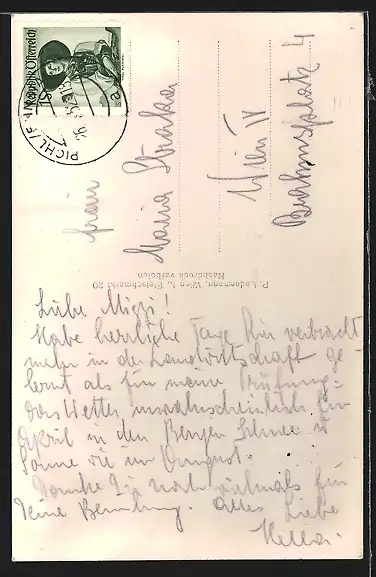 Republik Österreich
PICHL / ENNS
Frau
Maria Straka
Wien IV
Brahmsplatz 4
P. Ledermann, Wien I., Fleischmarkt 20
Nachdruck verboten
Liebe Mizzi!
Habe herrliche Tage hier verbracht
mehr in der Landwirtschaft ge-
lernt als für meine Prüfung-
das Wetter unwahrscheinlich für
April in den Bergen Schnee u
Sonne wie im August.
Danke Dir noch vielmals für
Deine Bemühung. Alles Liebe
Hella.